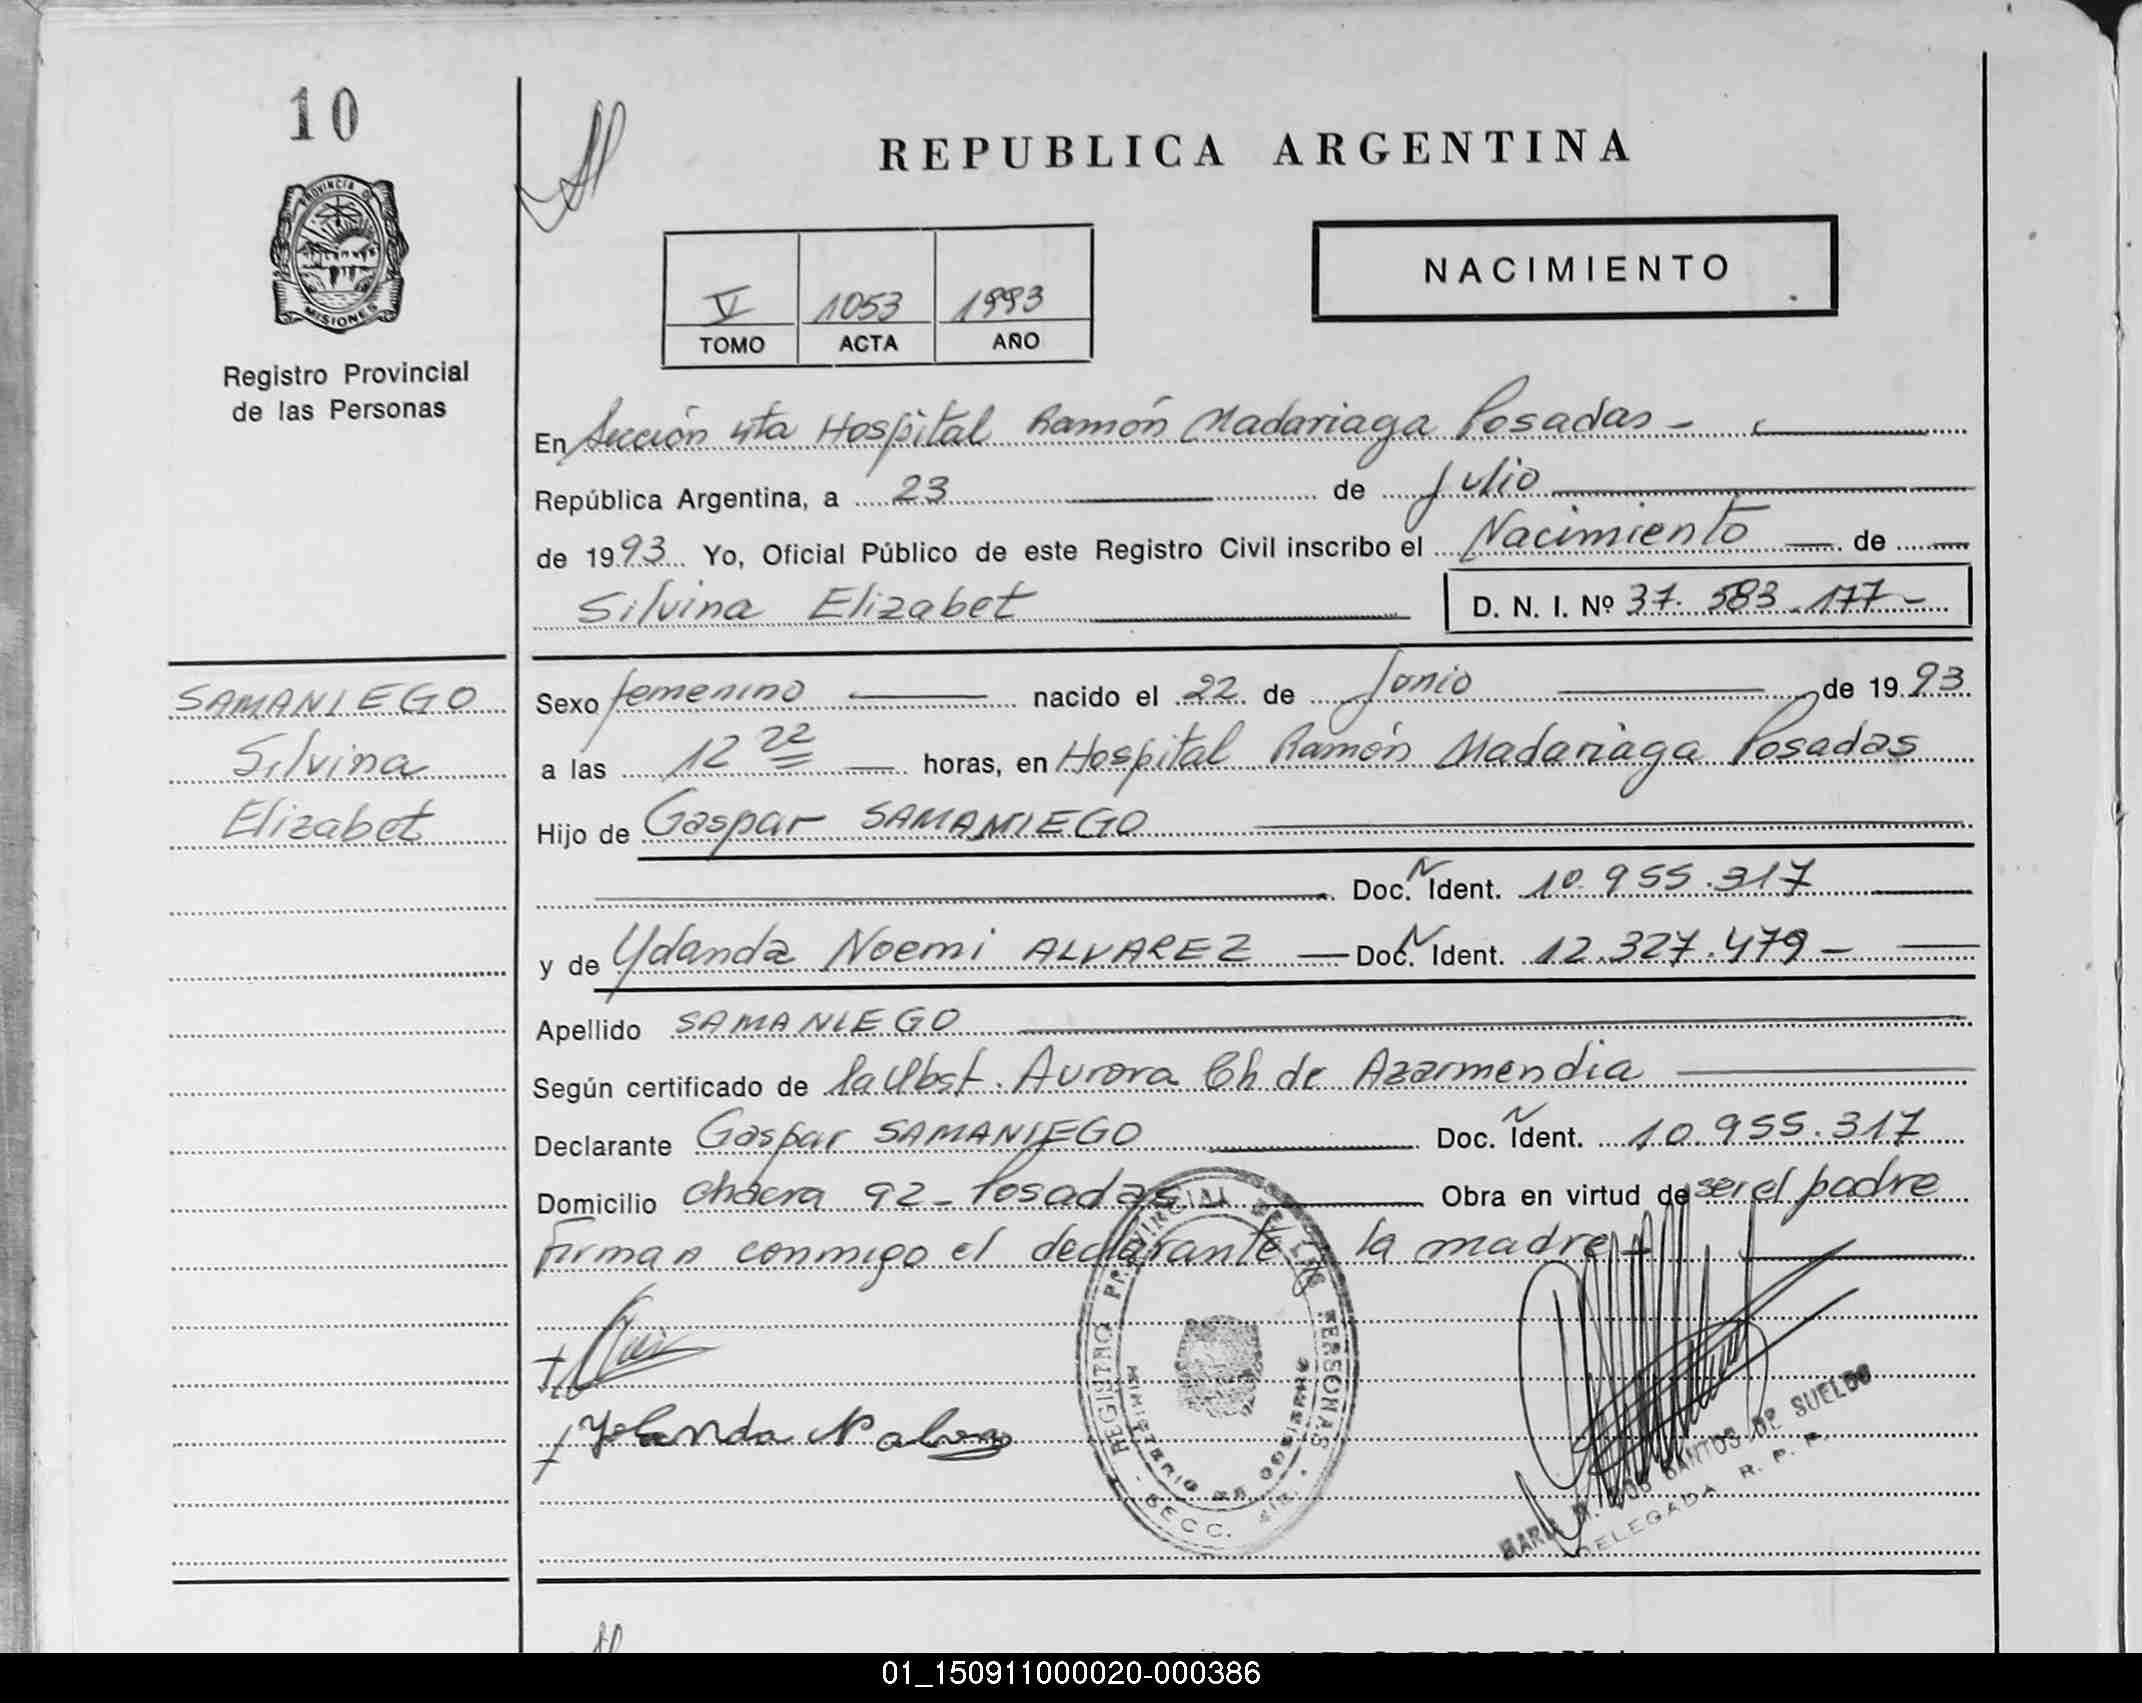 10
PROVINCIA D
MISIONES
Registro Provincial
de las Personas
REPUBLICA ARGENTINA
NACIMIENTO
V 1053 1993
TOMO ACTA AÑO
En Sección 4ta Hospital Ramón Madariaga Posadas -
República Argentina, a 23 de Julio
de 1993 Yo, Oficial Público de este Registro Civil inscribo el Nacimiento de
Silvina Elizabet D. N. I. Nº 37.583.177-
SAMANIEGO
Silvina
Elizabet
Sexo femenino nacido el 22 de Junio de 1993
a las 12 22 horas, en Hospital Ramón Madariaga Posadas
Hijo de Gaspar SAMANIEGO
Doc. N Ident. 10.955.317
y de Yolanda Noemi ALVAREZ Doc. N Ident. 12.327.479-
Apellido SAMANIEGO
Según certificado de la Obst. Aurora Ch de Azarmendia
Declarante Gaspar SAMANIEGO Doc. N Ident. 10.955.317
Domicilio chacra 92 - Posadas Obra en virtud de ser el padre
Firman conmigo el declarante y la madre
Yolanda N
REGISTRO PROVINCIAL DE LAS PERSONAS
MINISTERIO DE GOBIERNO
SECC. 4ta.
MARIA DOS SANTOS DE SUELDO
DELEGADA R. P. P.
01_150911000020-000386